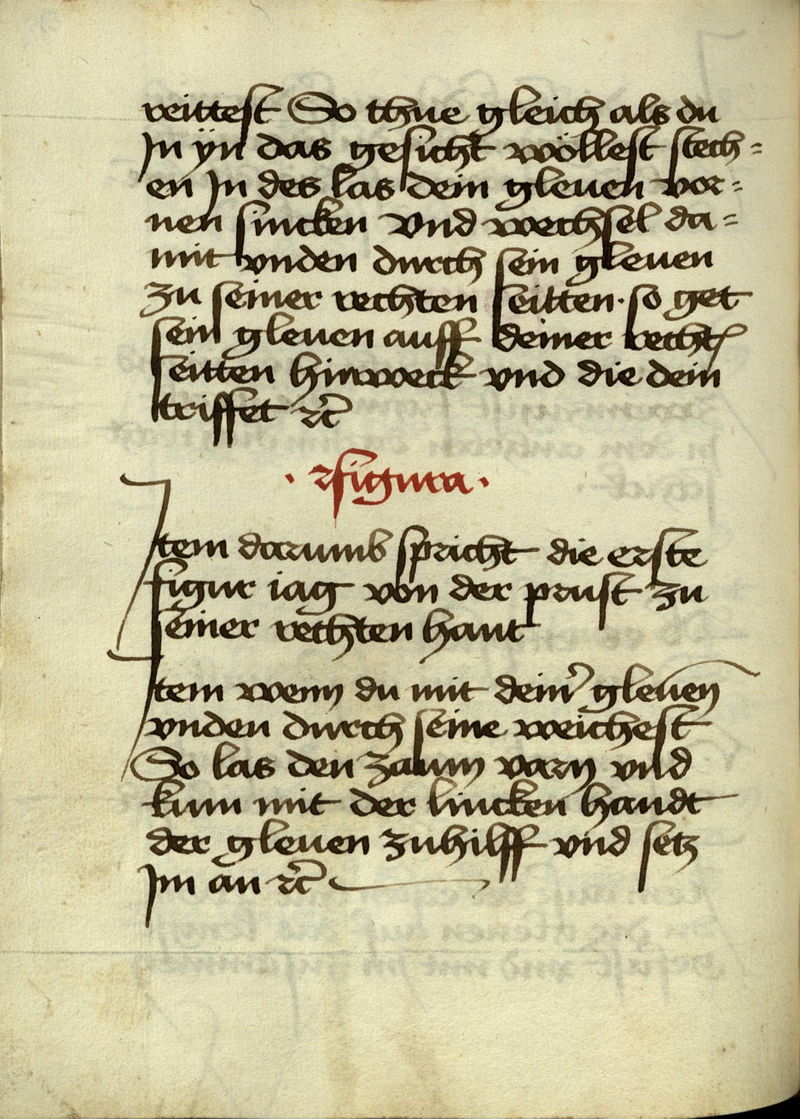 reittest So thue gleich als du
In ÿn das gesicht wöllest stech=
en In des las dein gleuen vor=
nen sincken Vnd wechsel da=
mit vnden durch sein gleuen
zu seiner rechten seitten· so get
sein gleuen auff deiner recht
seitten hinweck vnd die dein
triffet ⁊c̄
· 2 figura ·
Item darumb spricht die erste
figur iag von der prust zu
seiner rechten hant
Item wenn du mit deinr̄ gleuen̄
vnden durch seine weichest
So las den zaum varn vnd
kum mit der lincken handt
der gleuen zuhilff vnd setz
Im an ⁊c̄